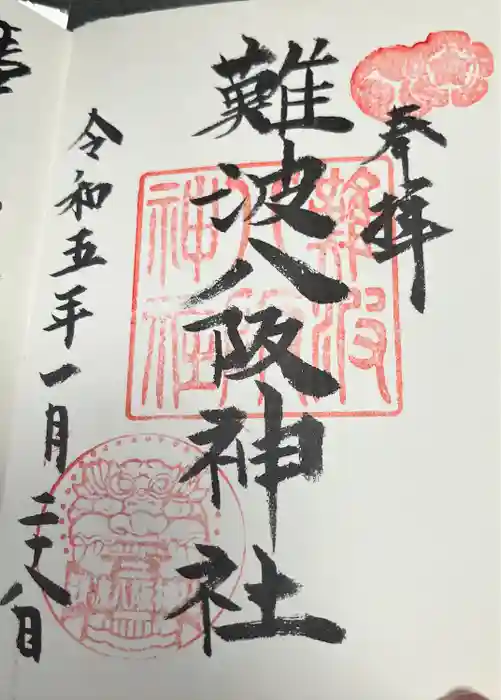 奉拝
難波八阪神社
令和五年一月二十八日
難波
八阪
神社
難波八阪神社